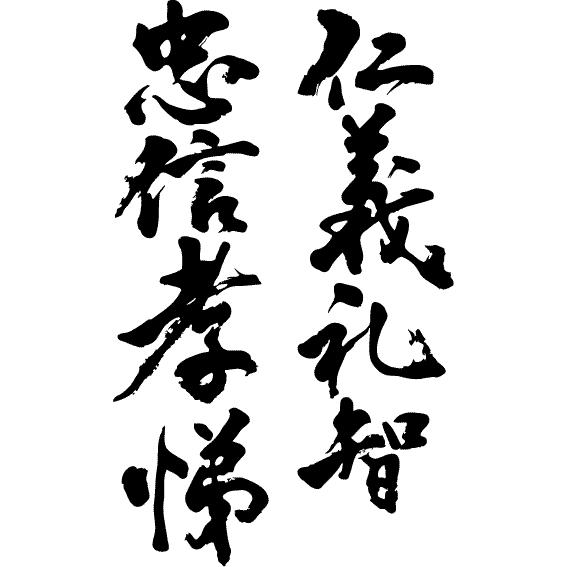 仁義礼智
忠信孝悌